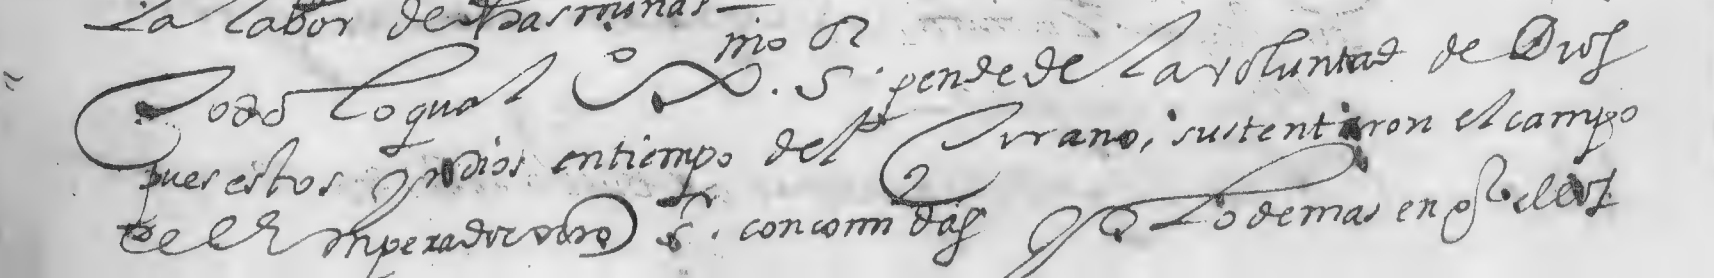 La labor de las minas —
Todo lo qual xpmo Sr. pende de la voluntad de Dios
pues estos Yndios en tiempo del tirrano, sustentaron el campo
del Emperador nro Sr. con comidas Y lo demas en q ellos